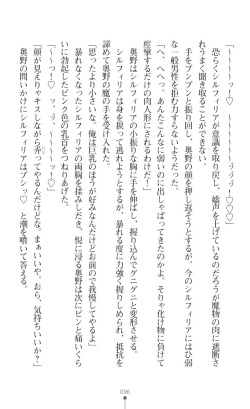 「～～～～ッ！♡　～～～～ッッッ！♡♡」
　恐らくシルフィリアが意識を取り戻し、嬌声を上げているのだろうが魔物の肉に遮断さ
れうまく聞き取ることができない。
　手をブンブンと振り回し、奥野の顔を押し返そうとするが、今のシルフィリアにはひ弱
な一般男性を拒む力すらないようだった。
「へ、へへっ。あんたこんなに弱いのに出しゃばってきたのかよ。そりゃ化け物に負けて
痙攣するだけの肉人形にされるわけだ！」
　奥野はシルフィリアの小振りな胸に手を伸ばし、握り込んでグニグニと変形させる。
　シルフィリアは身を捩って逃れようとするが、暴れる度に力強く握りしめられ、抵抗を
諦めて奥野の魔の手を受け入れた。
「思ったより小さいな、俺は巨乳のほうが好みなんだけどお前ので我慢してやるよ」
　暴れなくなったシルフィリアの両胸を揉みしだき、悦に浸る奥野は次にピンと痛いくら
いに勃起したピンク色の乳首をつねりあげた。
「～～～ッ！♡　ッ、ッ゛、～～～～ッ！♡」
「顔が見えりゃキスしながら弄ってやるんだけどな、まぁいいや。おら、気持ちいいか？」
　奥野の問いかけにシルフィリアはプシッ♡　と潮を噴いて答える。
096